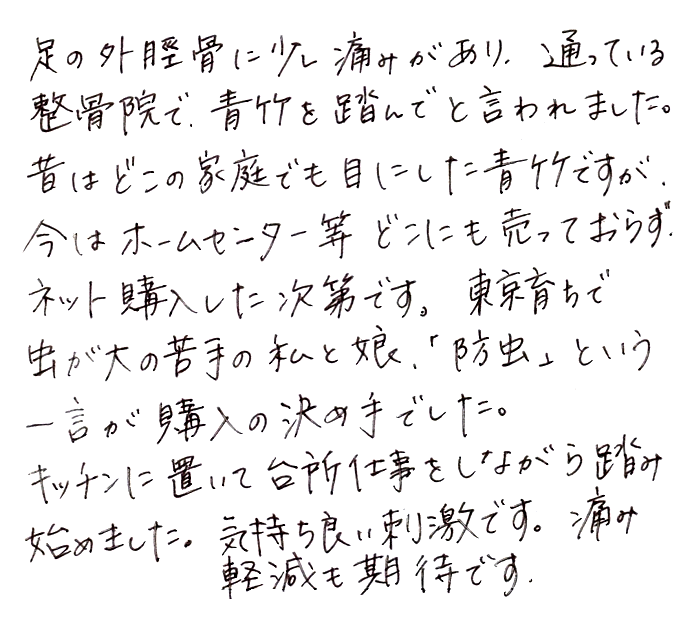 足の外脛骨に少し痛みがあり、通っている
整骨院で、青竹を踏んでと言われました。
昔はどこの家庭でも目にした青竹ですが、
今はホームセンター等どこにも売っておらず、
ネット購入した次第です。東京育ちで
虫が大の苦手の私と娘、「防虫」という
一言が購入の決め手でした。
キッチンに置いて台所仕事をしながら踏み
始めました。気持ち良い刺激です。痛み
軽減も期待です.